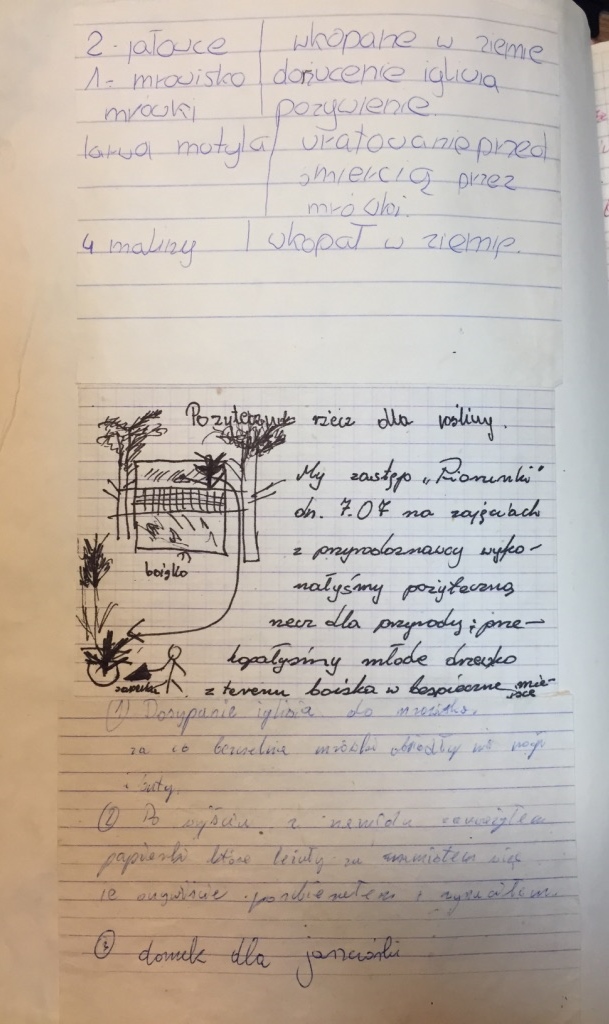 2. jałowce | wkopane w ziemie
1- mrowisko | dorzucenie igliwia
mrówki | pożywienie.
larwa motyla | uratowanie przed
śmiercią przez
mrówki.
4 maliny | wkopał w ziemie.
Pożyteczna rzecz dla rośliny.
My zastęp „Piorunki"
dn. 7.07 na zajęciach
z przyrodoznawcy wyko-
nałyśmy pożyteczną
rzecz dla przyrody; prze-
kopałyśmy młode drzewko
z terenu boiska w bezpieczne miejsce
boisko
① Dosypanie igliwia do mrowiska.
za co bezczelnie mrówki obeszły mi nogi
i buty.
② Po wyjściu z namiotu zauważyłem
papierki które leżały za namiotem więc
je oczywiście pozbierałem i wyrzuciłem.
③ domek dla jaszczórki